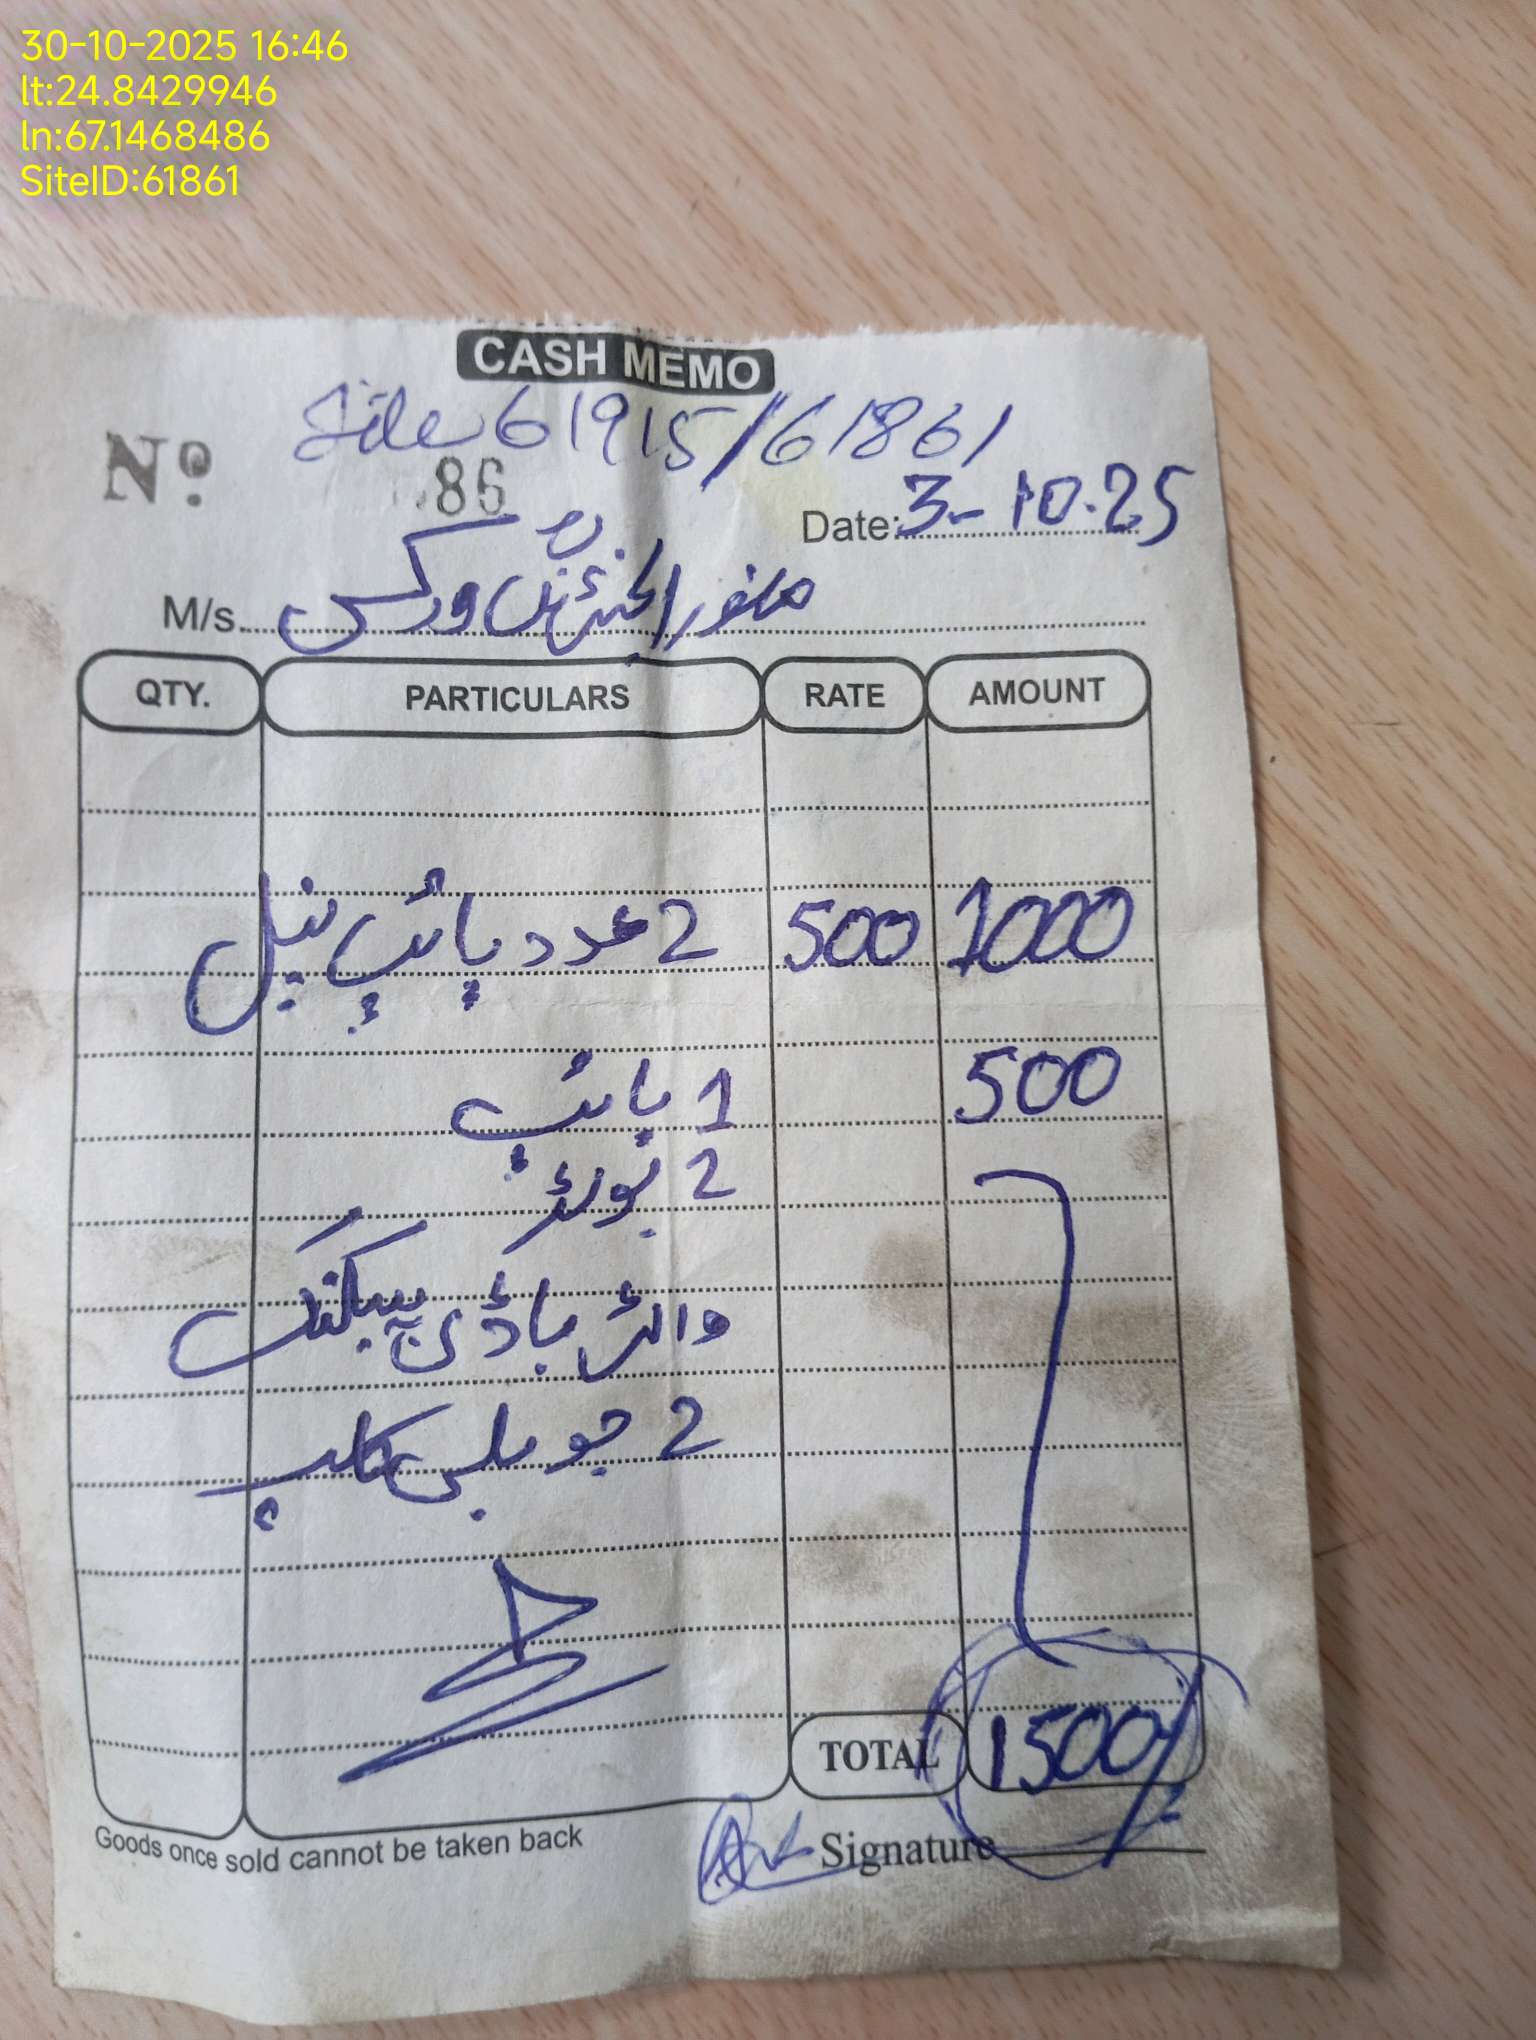 30-10-2025 16:46
lt:24.8429946
ln:67.1468486
SiteID:61861
CASH MEMO
Site 61915/61861
No 86
Date: 3-10-25
M/s. انجنئرنگ ورکس
QTY. PARTICULARS RATE AMOUNT
2 عدد پائپ نپل 500 1000
1 پائپ 500
2
باڈی پیکنگ
2 جوبلی کلپ
TOTAL 1500/-
Goods once sold cannot be taken back
Signature